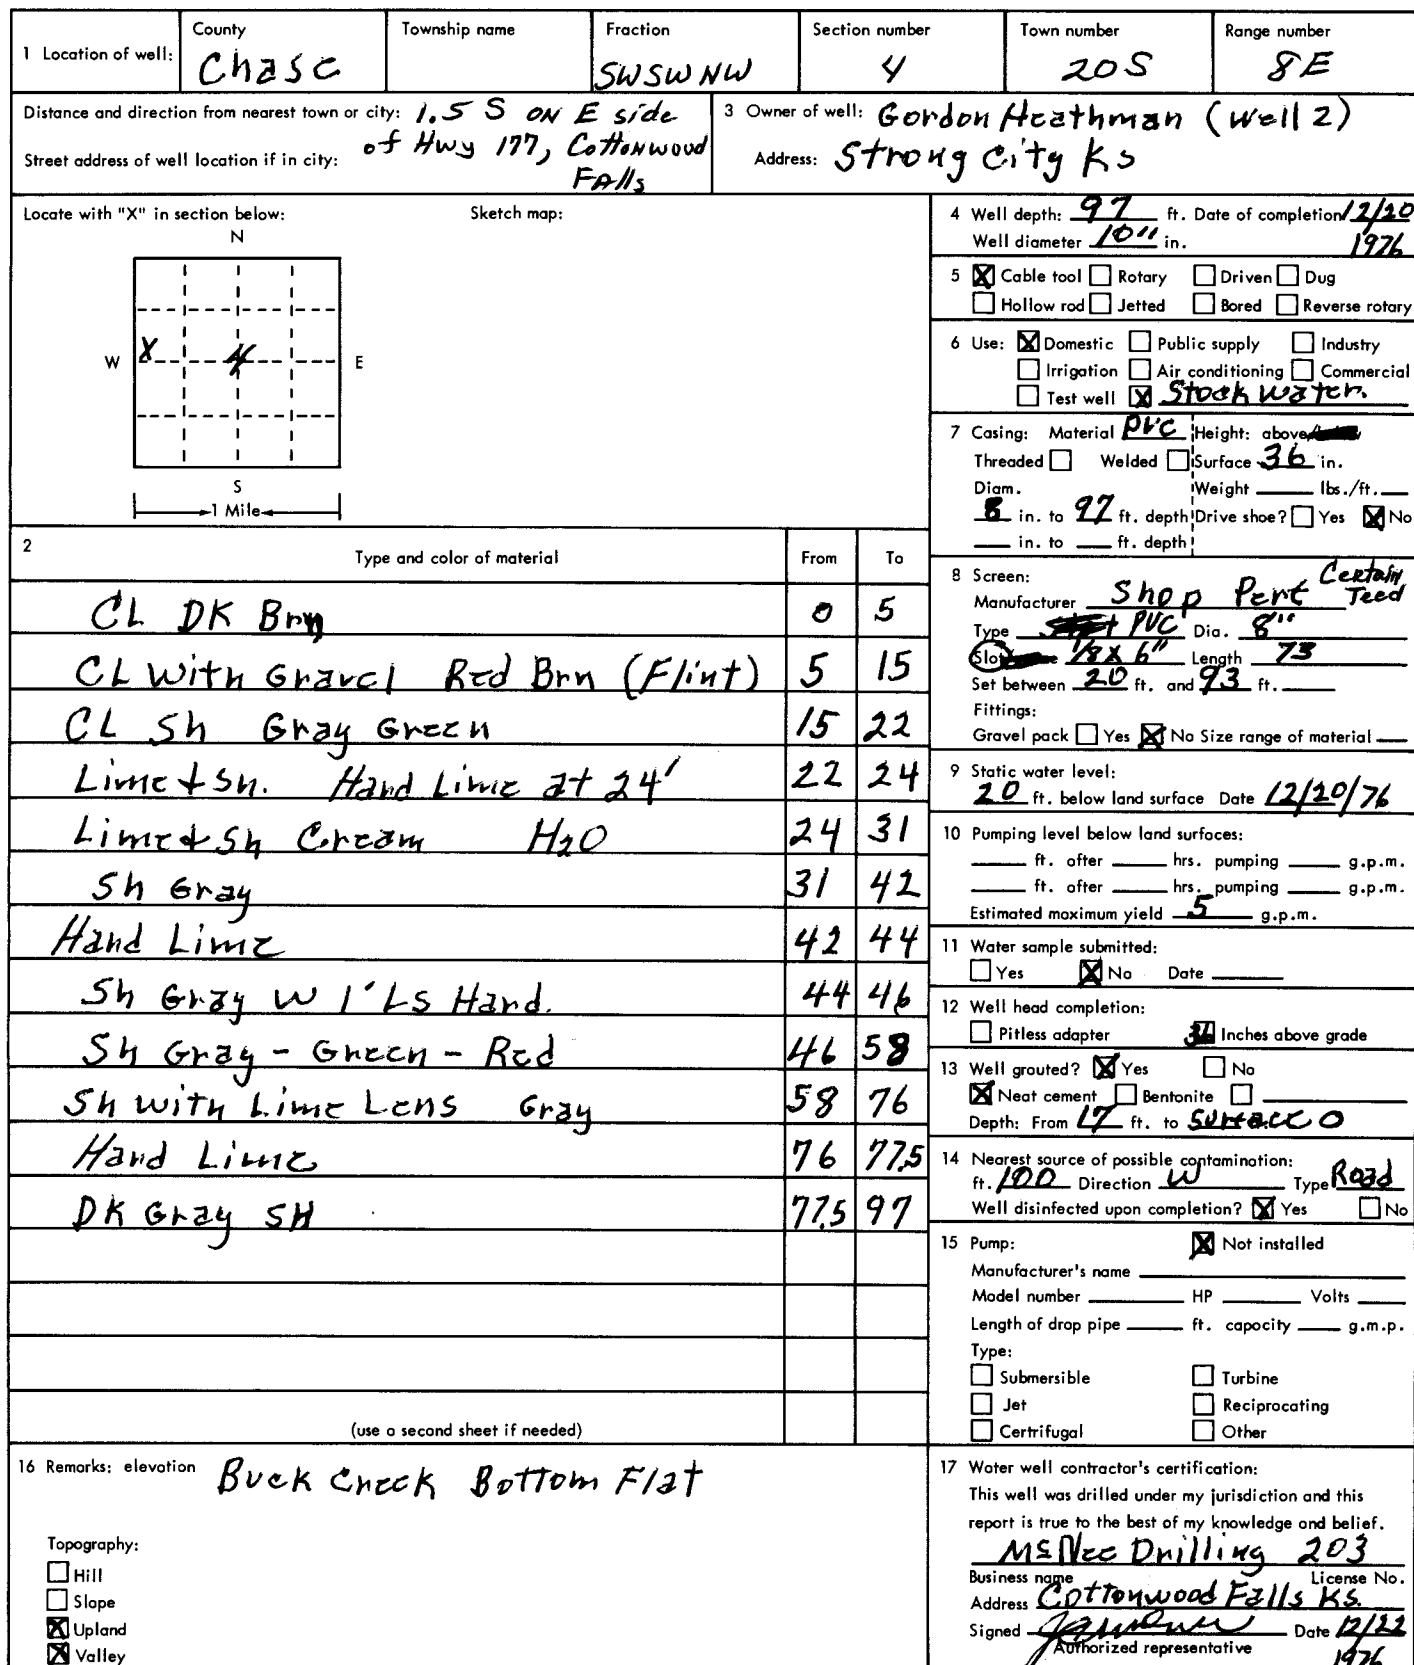 1 Location of well:
County
Chase
Township name
Fraction
SWSWNW
Section number
4
Town number
20S
Range number
8E
Distance and direction from nearest town or city: 1.5 S ON E side
of Hwy 177, Cottonwood
Falls
Street address of well location if in city:
3 Owner of well: Gordon Heathman (Well 2)
Address: Strong City Ks
Locate with "X" in section below:
Sketch map:
N
W X 4 E
S
1 Mile
2
Type and color of material From To
CL DK Brn 0 5
CL With Gravel Red Brn (Flint) 5 15
CL Sh Gray Green 15 22
Lime + Sh. Hard Lime at 24' 22 24
Lime + Sh Cream H2O 24 31
Sh Gray 31 42
Hard Lime 42 44
Sh Gray W 1' Ls Hard. 44 46
Sh Gray - Green - Red 46 58
Sh with Lime Lens Gray 58 76
Hard Lime 76 77.5
DK Gray SH 77.5 97
(use a second sheet if needed)
4 Well depth: 97 ft. Date of completion 12/20
Well diameter 10" in. 1976
5 X Cable tool Rotary Driven Dug
Hollow rod Jetted Bored Reverse rotary
6 Use: X Domestic Public supply Industry
Irrigation Air conditioning Commercial
Test well X Stock Water.
7 Casing: Material PVC Height: above
Threaded Welded Surface 36 in.
Diam. Weight lbs./ft.
8 in. to 97 ft. depth Drive shoe? Yes X No
in. to ft. depth
8 Screen:
Manufacturer Shop Perf Certain
Teed
Type PVC Dia. 8"
Slot 1/8 X 6" Length 73
Set between 20 ft. and 93 ft.
Fittings:
Gravel pack Yes X No Size range of material
9 Static water level:
20 ft. below land surface Date 12/20/76
10 Pumping level below land surfaces:
ft. after hrs. pumping g.p.m.
ft. after hrs. pumping g.p.m.
Estimated maximum yield 5 g.p.m.
11 Water sample submitted:
Yes X No Date
12 Well head completion:
Pitless adapter 36 Inches above grade
13 Well grouted? X Yes No
X Neat cement Bentonite
Depth: From 17 ft. to surface 0
14 Nearest source of possible contamination:
ft. 100 Direction W Type Road
Well disinfected upon completion? X Yes No
15 Pump: X Not installed
Manufacturer's name
Model number HP Volts
Length of drop pipe ft. capacity g.m.p.
Type:
Submersible Turbine
Jet Reciprocating
Certrifugal Other
16 Remarks: elevation Buck Creek Bottom Flat
Topography:
Hill
Slope
X Upland
X Valley
17 Water well contractor's certification:
This well was drilled under my jurisdiction and this
report is true to the best of my knowledge and belief.
McNee Drilling 203
Business name License No.
Address Cottonwood Falls Ks.
Signed Date 12/22
Authorized representative 1976